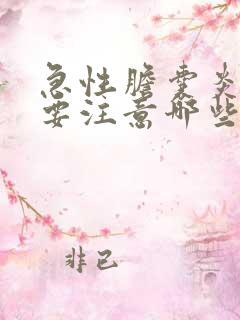 急性胆囊炎
要注意哪些
非己